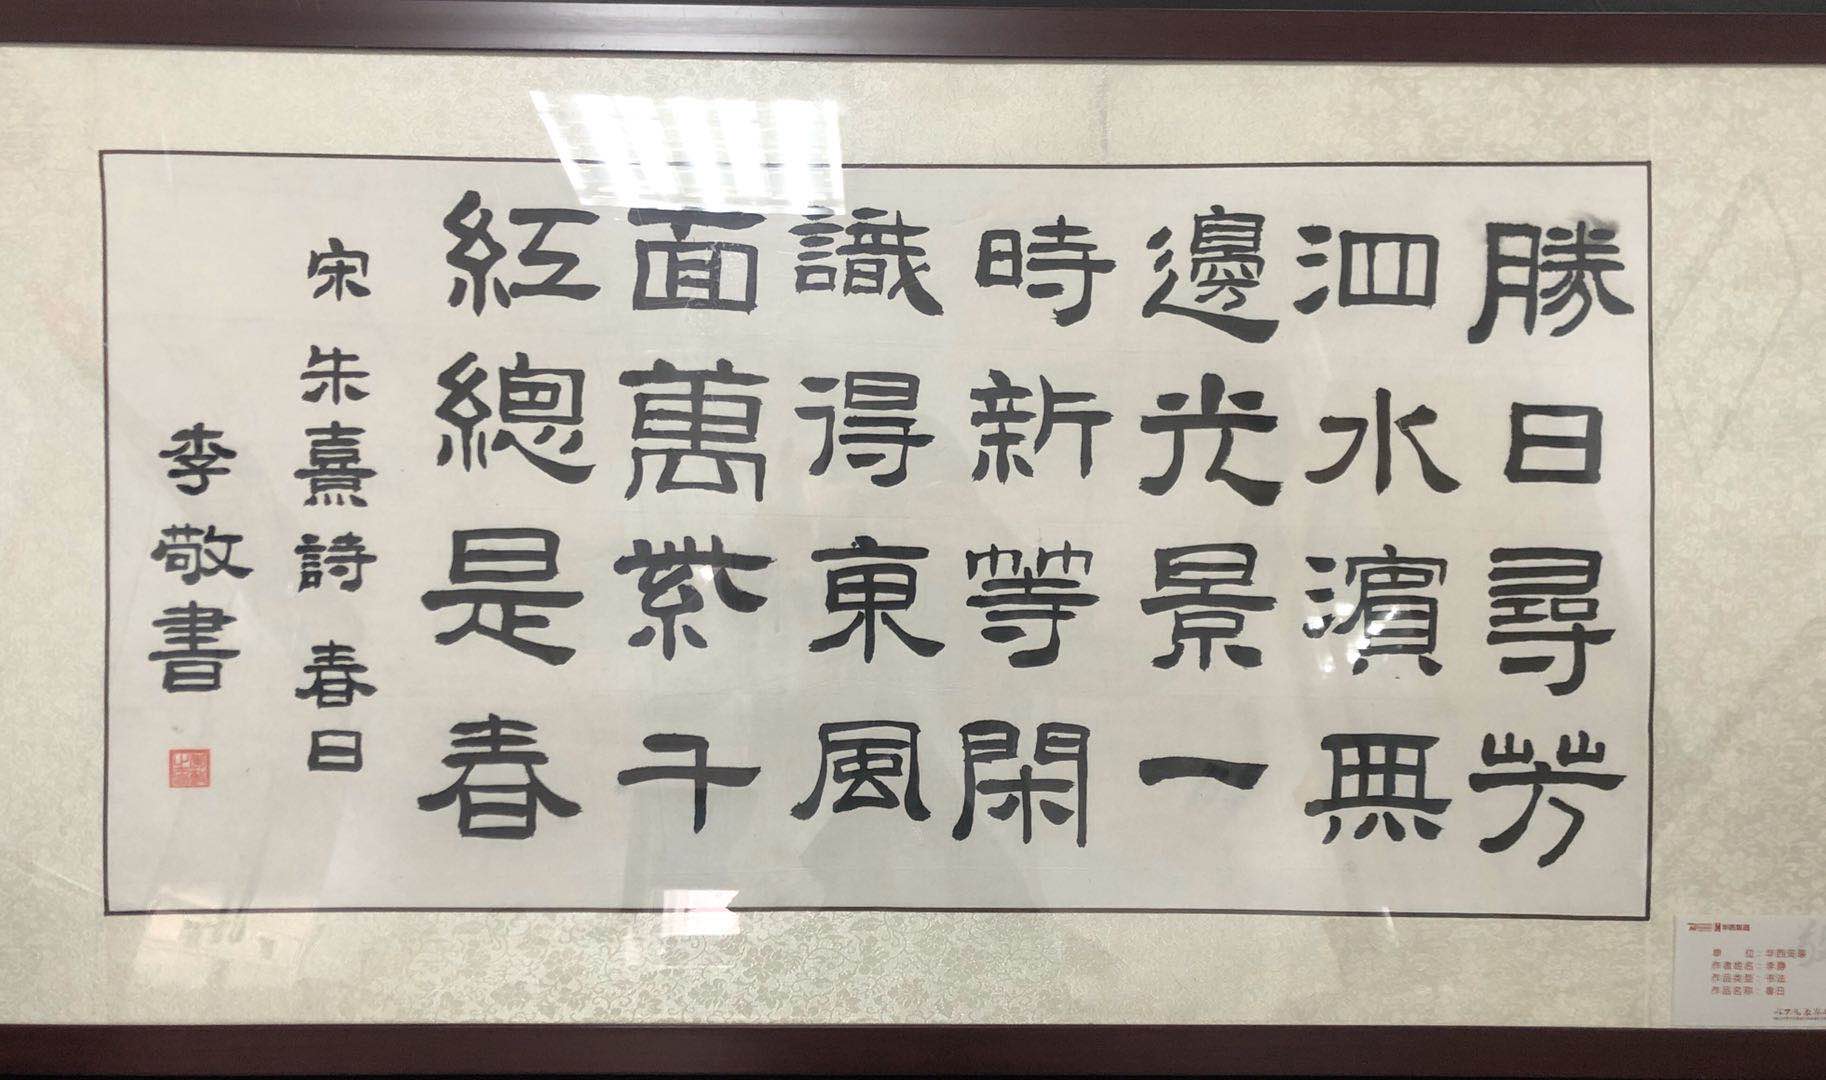 勝日尋芳
泗水濱無
邊光景一
時新等閑
識得東風
面萬紫千
紅總是春
宋朱熹詩 春日
李敬書
作者姓名：李静
作品类型：书法
作品名称：春日